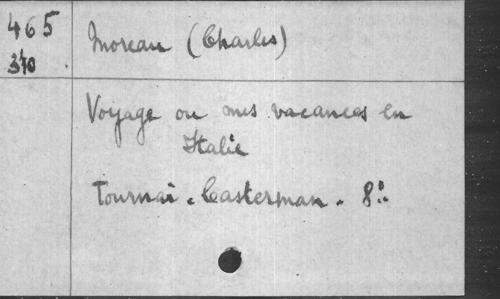 465 Moreau (Charles)
340
Voyage ou mes vacances en
Italie
Tournai. Casterman. 8°.